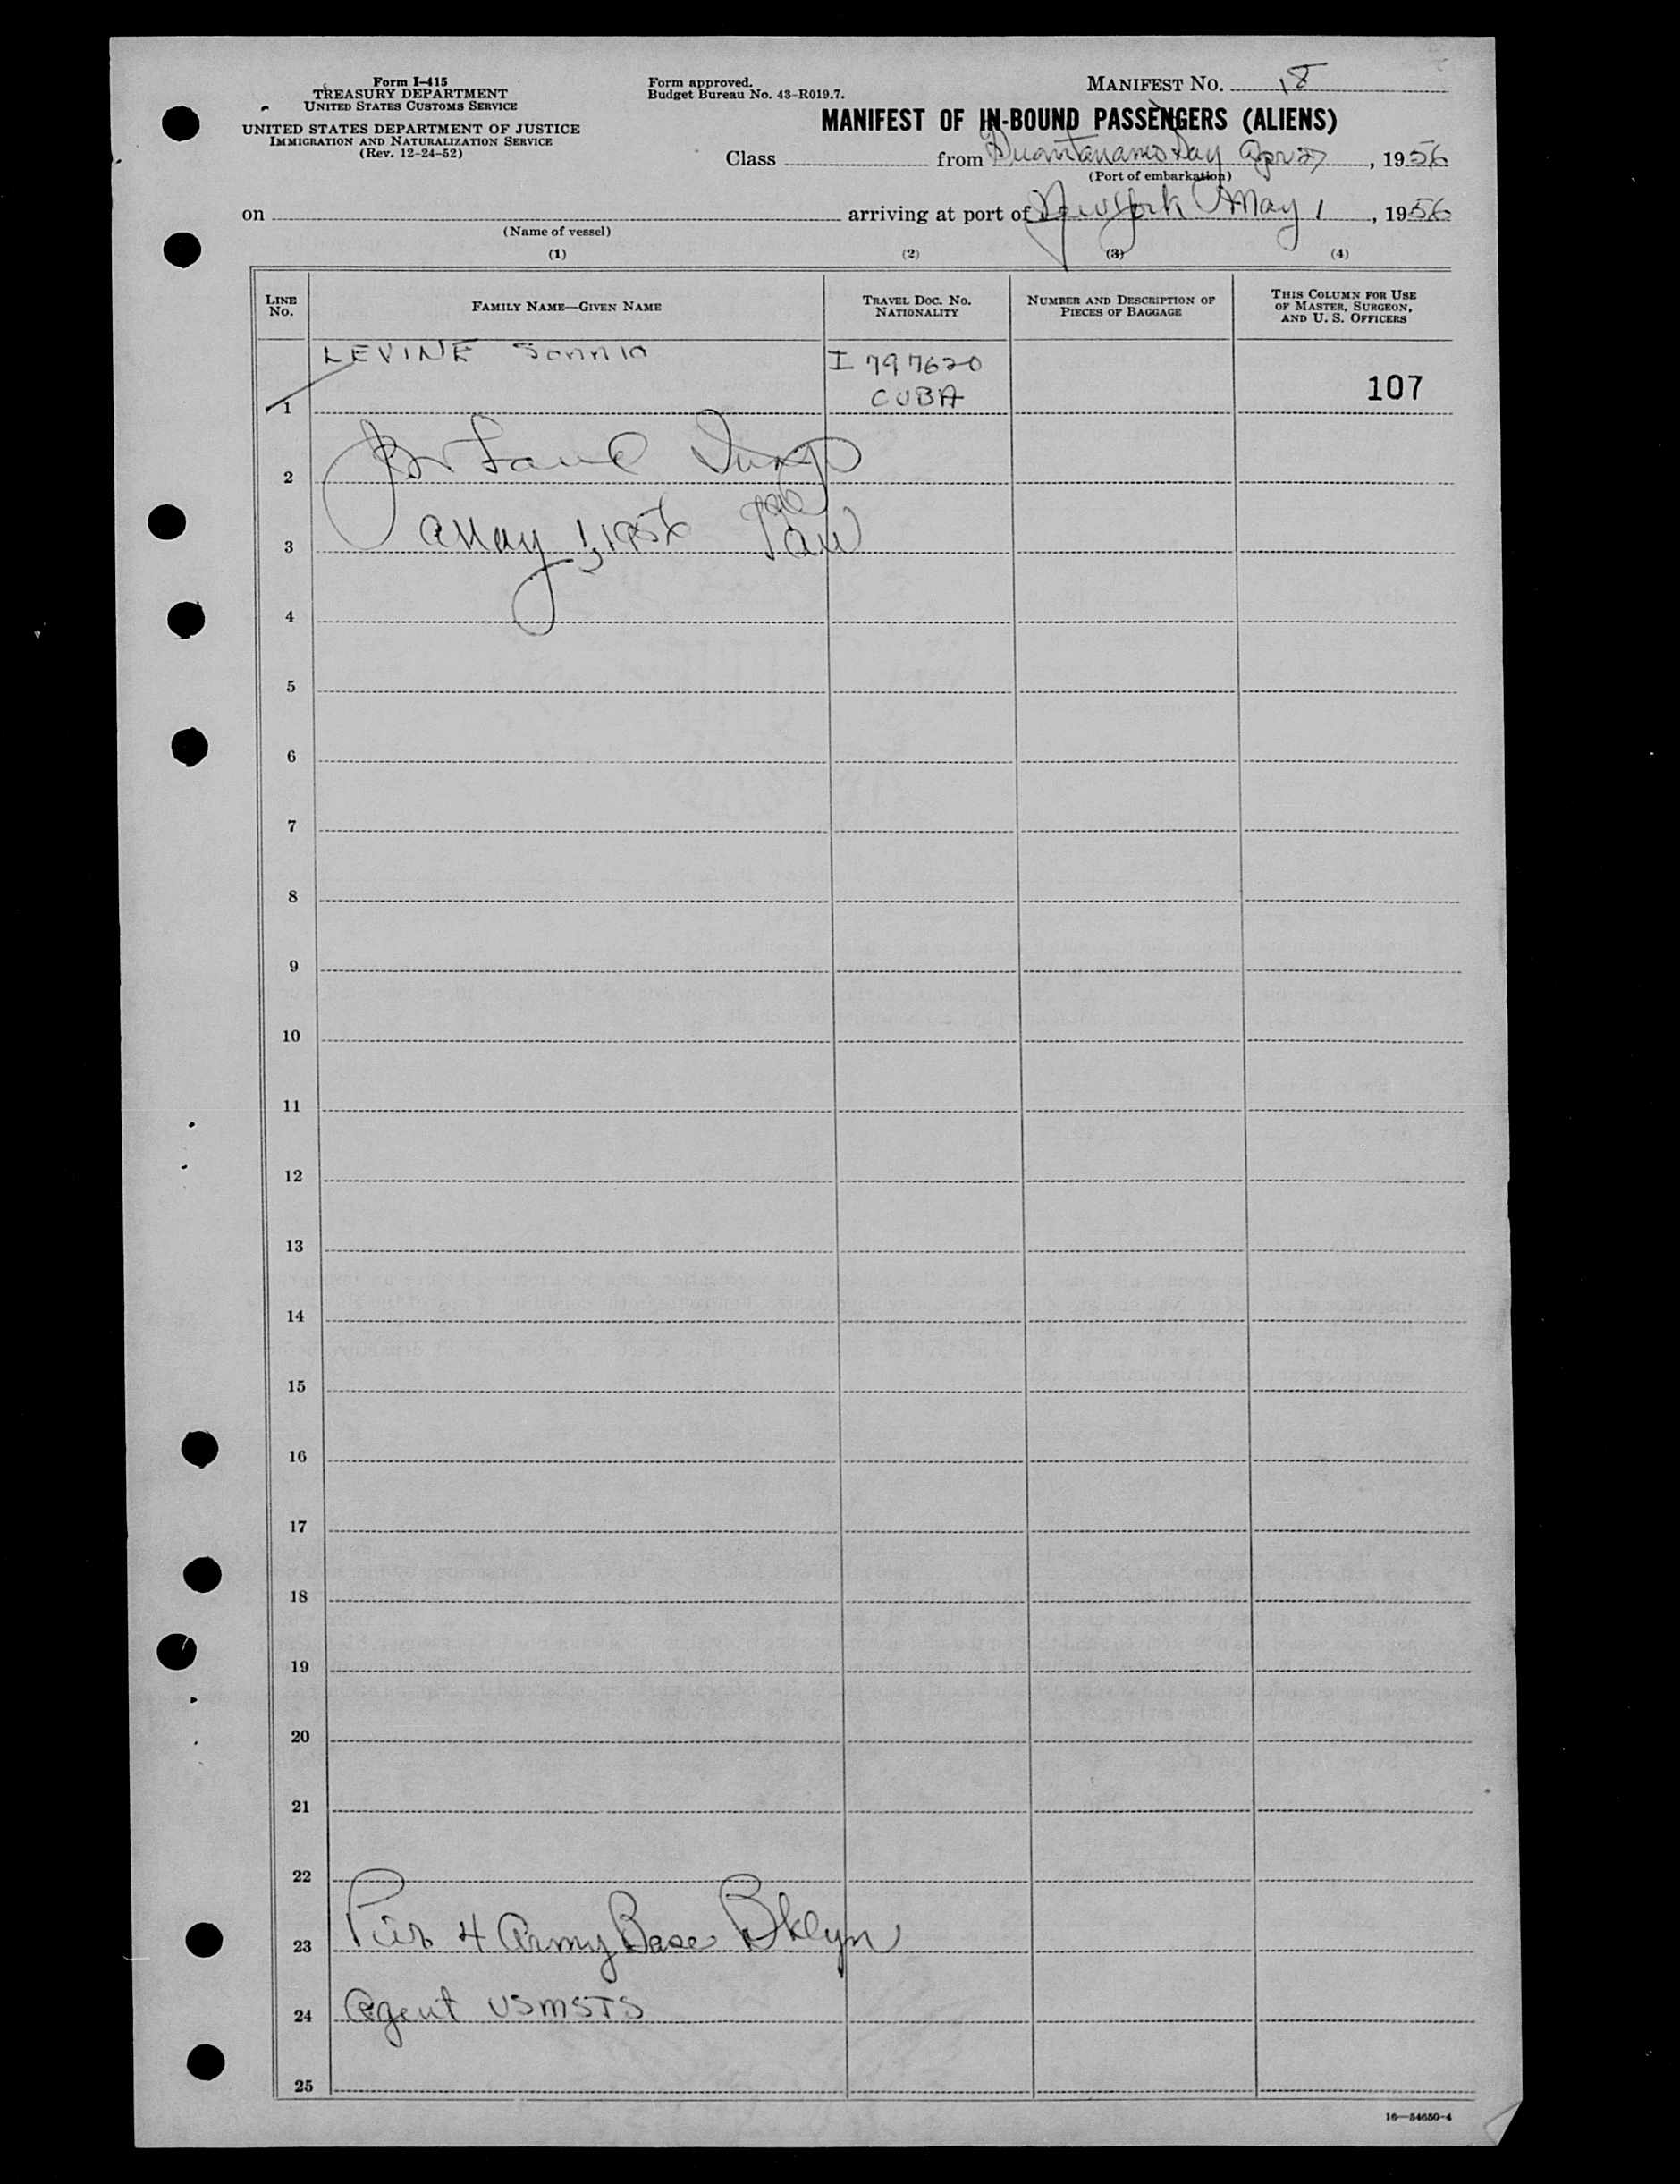 Form I-415
TREASURY DEPARTMENT
UNITED STATES CUSTOMS SERVICE
UNITED STATES DEPARTMENT OF JUSTICE
IMMIGRATION AND NATURALIZATION SERVICE
(Rev. 12-24-52)
Form approved.
Budget Bureau No. 43-R019.7.
MANIFEST NO. 18
MANIFEST OF IN-BOUND PASSENGERS (ALIENS)
Class from Guantanamo Bay Apr 27, 1956
(Port of embarkation)
on arriving at port of New York May 1, 1956
(Name of vessel)
(1) (2) (3) (4)
LINE No. FAMILY NAME—GIVEN NAME TRAVEL DOC. NO. NATIONALITY NUMBER AND DESCRIPTION OF PIECES OF BAGGAGE THIS COLUMN FOR USE OF MASTER, SURGEON, AND U. S. OFFICERS
LEVINE Sonnia I 797620
1 CUBA 107
2
3 May 1, 1956
4
5
6
7
8
9
10
11
12
13
14
15
16
17
18
19
20
21
22
23 Pier 4 Army Base Bklyn
24 Agent USMSTS
25
16—54650-4